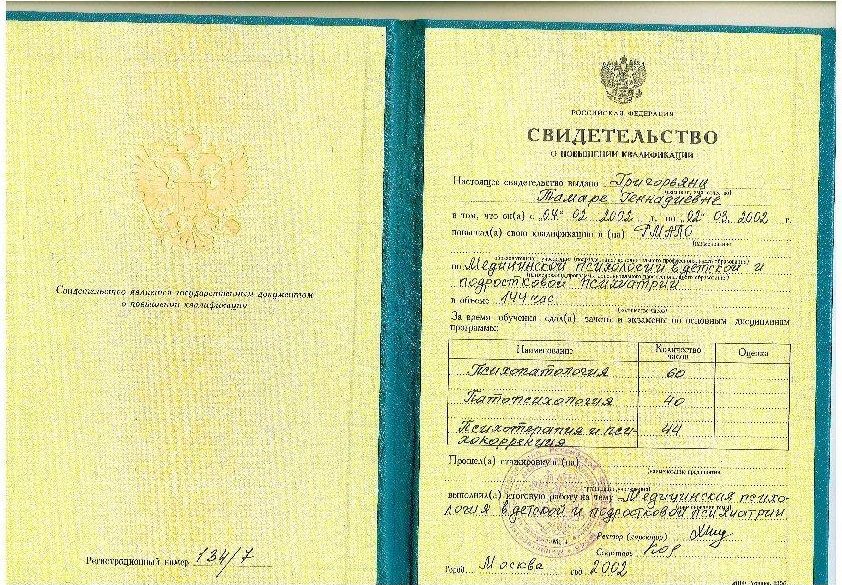 Свидетельство является государственным документом
о повышении квалификации
Регистрационный номер 134/7
РОССИЙСКАЯ ФЕДЕРАЦИЯ
СВИДЕТЕЛЬСТВО
О ПОВЫШЕНИИ КВАЛИФИКАЦИИ
Настоящее свидетельство выдано Григорьянц
Тамаре Геннадиевне
в том, что он(а) с „04“ 02 2002 г. по „02“ 03. 2002 г.
повысил(а) свою квалификацию в (на) РМАПО
по Медицинской психологии в детской и
подростковой психиатрии
в объеме 144 час.
(количество часов)
За время обучения сдал(а) зачеты и экзамены по основным дисциплинам
программы:
Наименование Количество часов Оценка
Психопатология 60
Патопсихология 40
Психотерапия и пси-
хокоррекция 44
Прошел(а) стажировку в (на)
(наименование предприятия,
выполнил(а) итоговую работу на тему Медицинская психо-
логия в детской и подростковой психиатрии
М.П.
Ректор (директор)
Секретарь
Город Москва год 2002